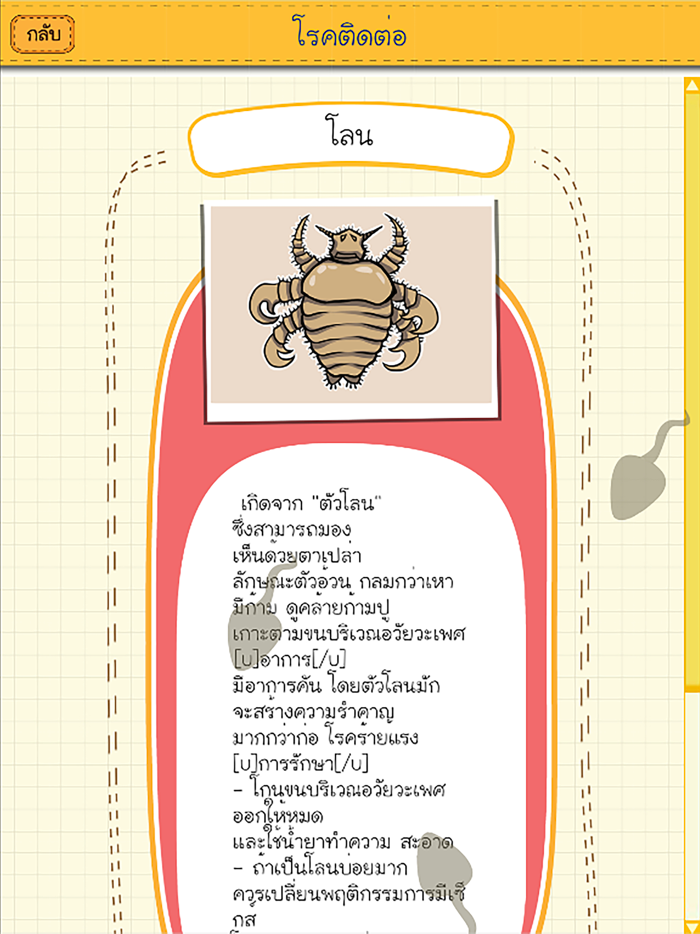 กลับ
โรคติดต่อ
โลน
เกิดจาก "ตัวโลน"
ซึ่งสามารถมอง
เห็นด้วยตาเปล่า
ลักษณะตัวอ้วน กลมกว่าเหา
มีก้าม ดูคล้ายก้ามปู
เกาะตามขนบริเวณอวัยวะเพศ
[u]อาการ[/u]
มีอาการคัน โดยตัวโลนมัก
จะสร้างความรำคาญ
มากกว่าก่อ โรคร้ายแรง
[u]การรักษา[/u]
- โกนขนบริเวณอวัยวะเพศ
ออกให้หมด
และใช้น้ำยาทำความ สะอาด
- ถ้าเป็นโลนบ่อยมาก
ควรเปลี่ยนพฤติกรรมการมีเซ็
กส์